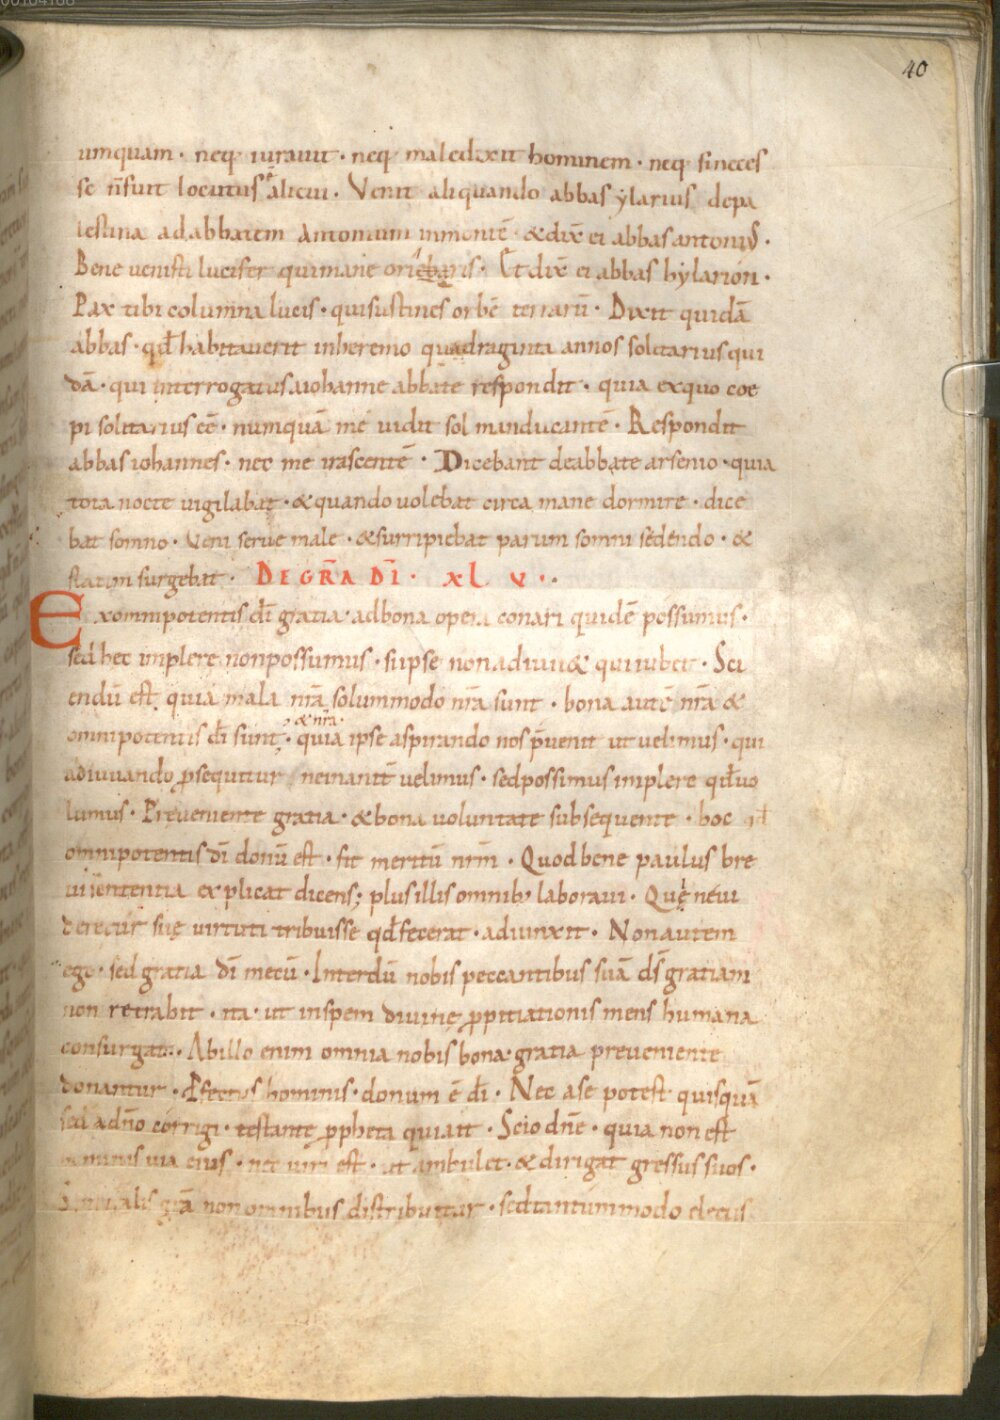 40
umquam · neq; iurauit · neq; maledixit hominem · neq; sineces
se n̄ fuit locutus ē alicui · Venit aliquando abbas ylarius depa
lestina ad abbatem Antonium inmontē · & dix̄ ei abbas antonius ·
Bene uenisti lucifer quimane oriebaris · Et dix̄ ei abbas hylarion ·
Pax tibi columna lucis · quisustines orbē terrarū · Dixit quidā
abbas · qđ habitauerit inheremo quadraginta annos solitarius qui
dā · qui interrogatus aiohanne abbate respondit · quia exquo coe
pi solitarius eē · numquā me uidit sol manducantē · Respondit
abbas iohannes · nec me irascentē · Dicebant deabbate arsenio · quia
tota nocte uigilabat · & quando uolebat circa mane dormire · dice
bat somno · Veni serue male · & surripiebat parum somni sedendo · &
statim surgebat · DE GRĀ DĪ · XL V ·
Exomnipotentis dī gratia · adbona opera conari quidē possumus ·
sed hec implere nonpossumus · si ipse nonadiuu& quiiubet · Sci
endū est quia mala nr̄a solummodo nr̄a sunt · bona autē nr̄a &
omnipotentis dī sunt · & nr̄a · quia ipse aspirando nos p̄uenit ut uelimus · qui
adiuuando ꝓsequitur neinanit̄ uelimus · sedpossimus implere qđuo
lumus · Preueniente gratia · & bona uoluntate subsequente · hoc qđ
omnipotentis dī donū est · fit meritū nr̄m · Quod bene paulus bre
ui sententia explicat dicens; plus illis omnib; laboraui · Quę ne ui
deretur suę uirtuti tribuisse qđ fecerat · adiunxit · Non autem
ego · sed gratia dī mecū · Interdū nobis peccantibus suā ds̄ gratiam
non retrahit · ita · ut inspem diuine ꝓpitiationis mens humana
consurgat · Abillo enim omnia nobis bona · gratia preueniente
donantur · Pfectus hominis · donum ē dī · Nec a se potest quisquā
sed a dn̄o corrigi · testante ꝓpheta quiait · Scio dn̄e · quia non est
hominis uia eius · nec uiri est · ut ambulet · & dirigat gressus suos ·
grā non omnibus distribuitur · sedtantummodo electis